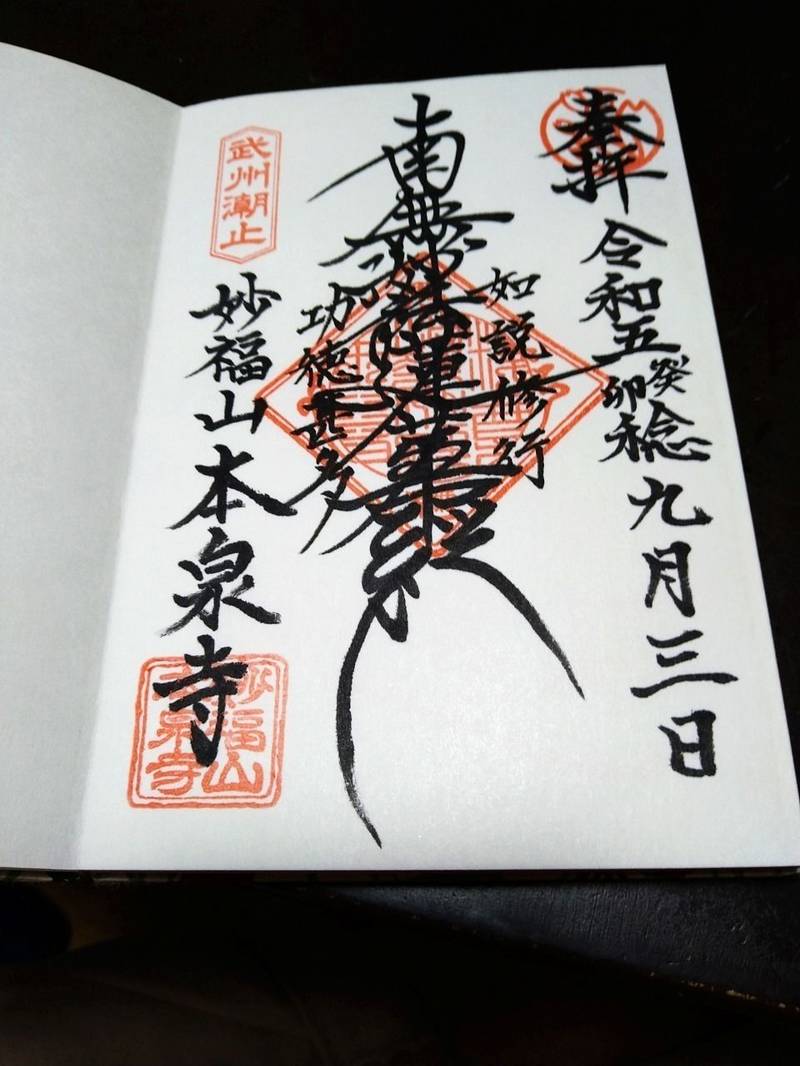 奉拝
令和五癸卯稔九月三日
如説修行
南無妙法蓮華経
功徳甚多
武州潮止
妙福山本泉寺
妙福山本泉寺